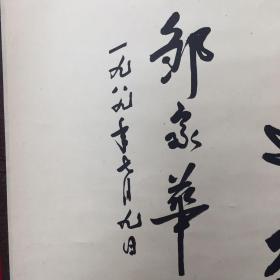 邹家华
一九八九年七月九日